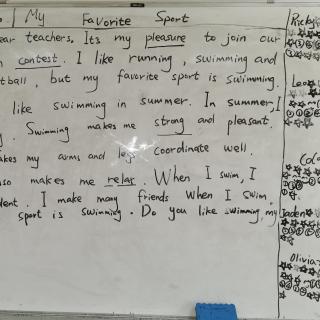 My Favorite Sport
ear teachers. Its my pleasure to join our
contest. I like running, swimming and
tball, but my favorite sport is swimming.
like swimming in summer. In summer I
Swimming makes me strong and pleasant.
akes my arms and legs coordinate well.
lso makes me relax. When I swim, I
dent. I make many friends when I swim.
sport is swimming. Do you like swimming, my
Ricky
Leo
Co
Jaden
Olivia